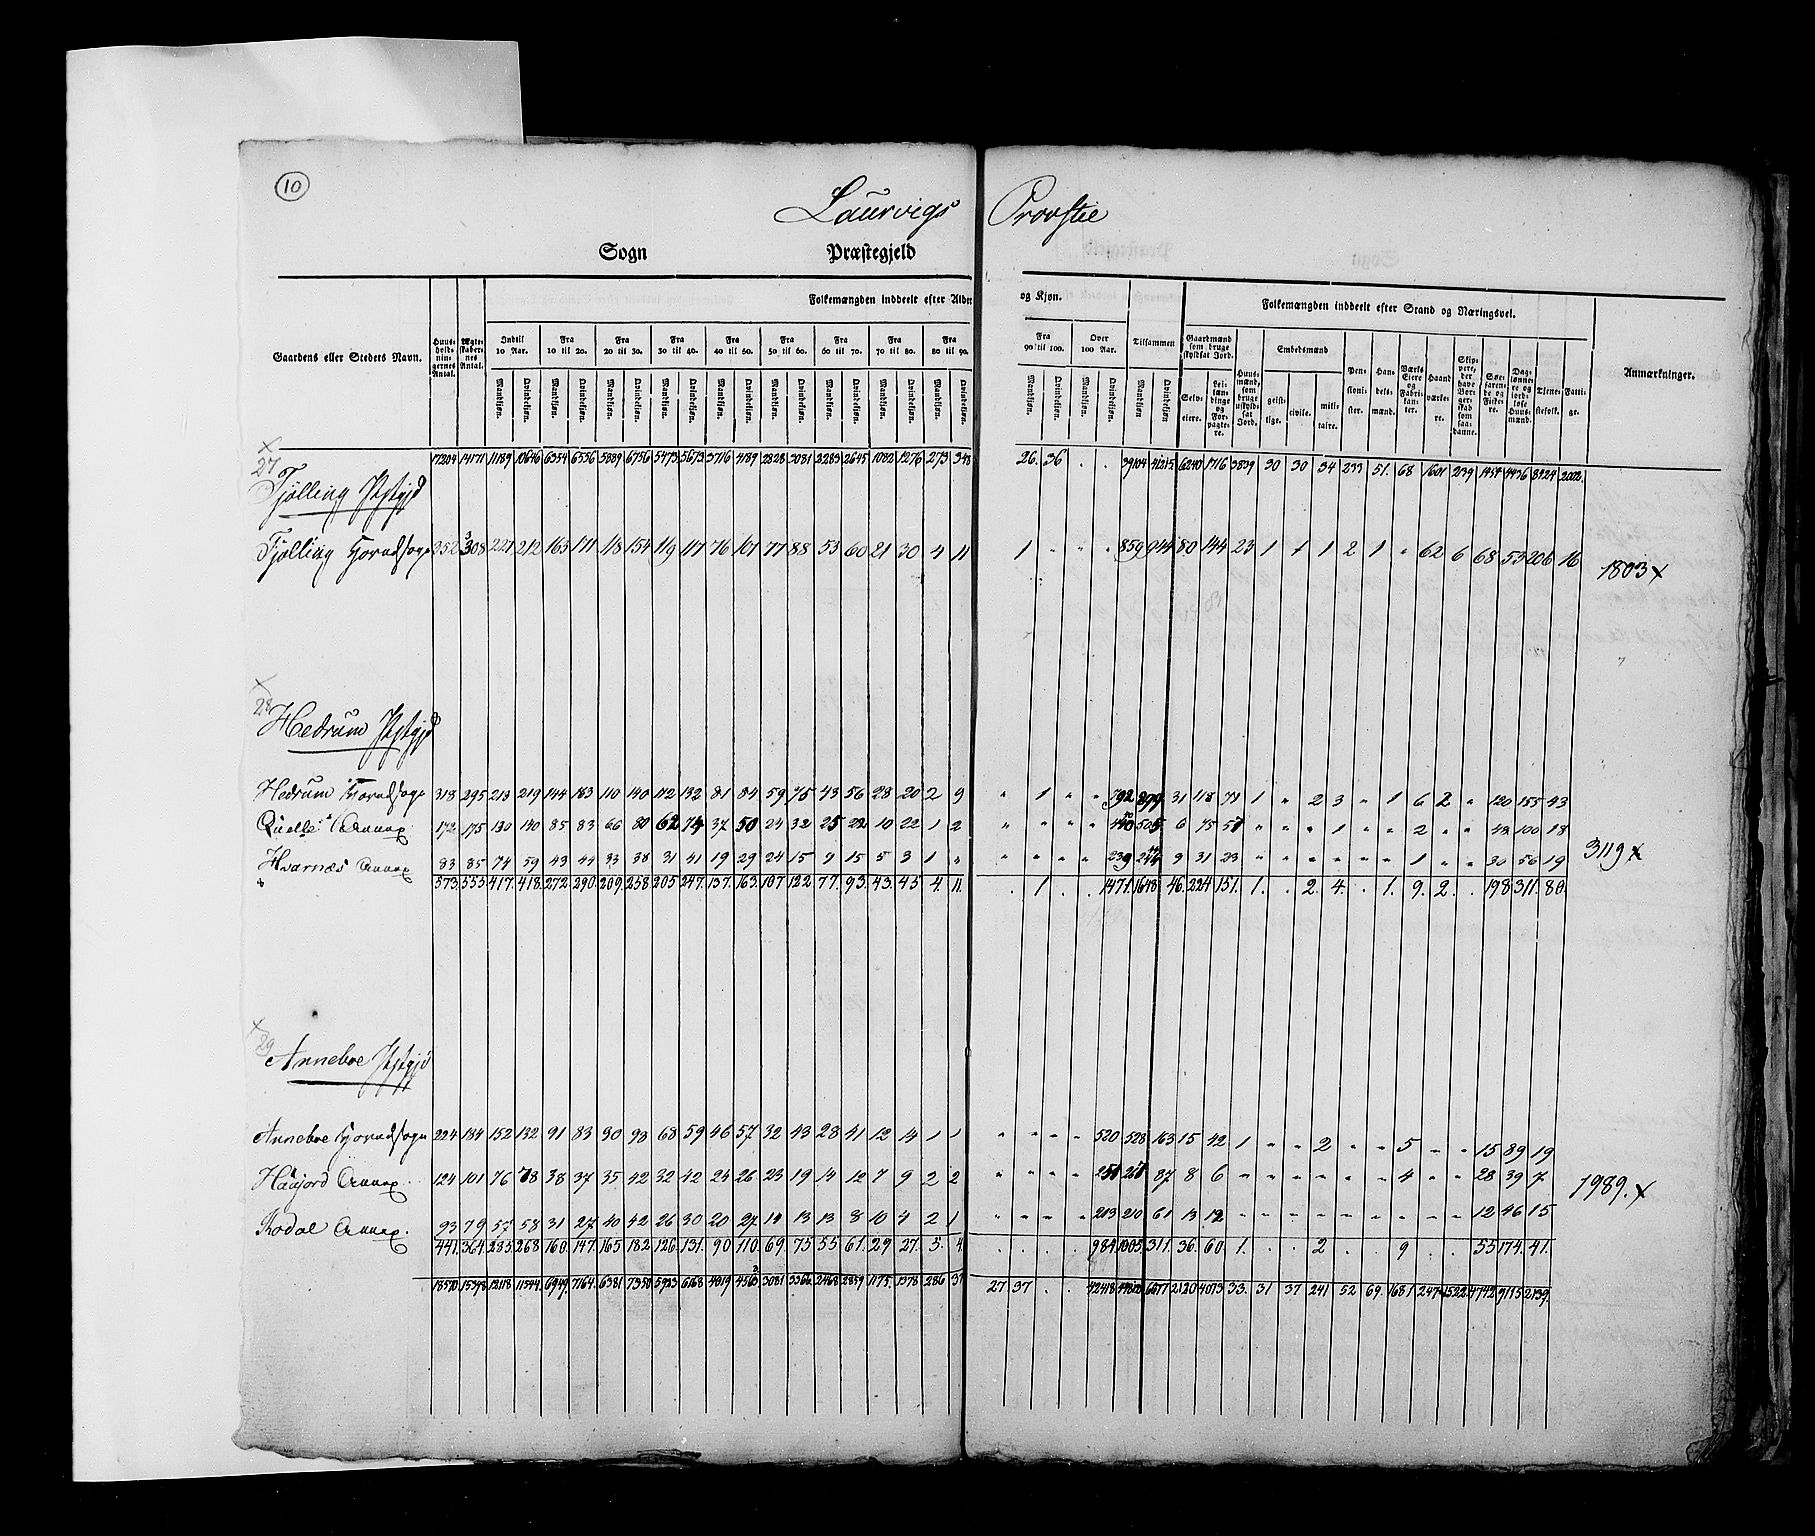 10
Laurvigs Provstie
Sogn Præstegjeld
Gaardens eller Steders Navn. Huusholdningernes Antal. Ægteskabernes Antal. Folkemængden inddeelt efter Alder og Kjøn. Tilsammen Folkemængden inddeelt efter Stand og Næringsvei. Anmærkninger.
Indtil 10 Aar. Fra 10 til 20. Fra 20 til 30. Fra 30 til 40. Fra 40 til 50. Fra 50 til 60. Fra 60 til 70. Fra 70 til 80. Fra 80 til 90. Fra 90 til 100. Over 100 Aar. Gaardmænd som bruge skyldsat Jord. Huusmænd, som bruge uskyldsat Jord. Embedsmænd Pensionister. Handelsmænd. Værks Eiere og Fabrikanter. Haandværkere. Skippere, der have Borgerskab som saadanne. Søefarende og Fiskere. Daglønnere og jordløse Huusmænd. Tienestefolk. Fattige.
Mandkjøn. Qvindekjøn. Mandkjøn. Qvindekjøn. Mandkjøn. Qvindekjøn. Mandkjøn. Qvindekjøn. Mandkjøn. Qvindekjøn. Mandkjøn. Qvindekjøn. Mandkjøn. Qvindekjøn. Mandkjøn. Qvindekjøn. Mandkjøn. Qvindekjøn. Mandkjøn. Qvindekjøn. Mandkjøn. Qvindekjøn. Mandkjøn. Qvindekjøn. Selveiere. Leilændinge og Forpagtere. geistlige. civile. militaire.
17204 14171 11189 10646 6354 6556 5889 6756 5473 5673 3716 4189 2828 3081 2283 2645 1082 1276 273 348 26. 36 . . 39104 41215 6240 1716 3839 30 30 34 233 51. 68 1601 239 1454 4436 8724 2002.
x
27
Tjølling Pstgjd
Tjølling Hovedsogn 352 308 227 212 163 171 118 154 119 117 76 101 77 88 53 60 21 30 4 11 1 " " " 859 944 80 144 23 1 1 1 2 1 " 62 6 68 53 206 16 1803 x
x
28
Hedrum Pstgjd
Hedrum Hovedsogn 318 295 213 219 144 163 110 140 112 132 81 84 59 75 43 56 28 20 2 9 " 1 " " 792 899 31 118 71 1 " 2 3 " 1 6 2 " 120 155 43
Qvelle Annex 172 175 130 140 85 83 66 80 62 74 37 50 24 32 25 22 10 22 1 2 " " " " 440 505 6 75 57 " " " 1 " " 2 " " 48 100 18
Hvarnæs Annex 83 85 74 59 43 44 33 38 31 41 19 29 24 15 9 15 5 3 1 " " " " " 239 244 9 31 23 " " " " " " 1 " " 30 56 19 3119 x
573. 555 417. 418. 272 290. 209 258. 205 247. 137. 163. 107 122 77. 93. 43. 45 4. 11. . 1. . . 1471. 1648 46. 224 151. 1. . 2. 4. . 1. 9. 2. . 198 311. 80.
x
29
Anneboe Pstgjd
Anneboe Hovedsogn 224 184 152 132 91 83 90 98 68 59 46 57 32 43 28 41 12 14 1 1 " " " " 520 528 163 15 42 1 " " 2 " " 5 " " 15 89 19
Haujord Annex. 124 101 76 78 38 37 35 42 32 42 24 26 23 19 14 12 7 9 2 2 " " " " 251 267 87 8 6 " " " " " " 4 " " 28 39 7
Kodal Annex. 93 79 57 58 31 27 40 42 26 30 20 27 14 13 13 8 10 4 2 1 " " " " 213 210 61 13 12 " " " " " " " " " 12 46 15 1989. x
441. 364. 285. 268 160. 147. 165 182. 126. 131. 90 110. 69. 75 55 61. 29 27. 5. 4. . . . . 984 1005. 311. 36. 60. 1. . . 2 . . 9 . . 55 174. 41.
18570. 15398 12118 11544. 6949. 7164. 6381 7350 5923 6168 4019 4563 3081 3366 2468 2859 1175. 1378 286 27 37 . . 42418 6677 2120 4073 33. 31 37 241 52 69. 1681 247 1522. 4742 9115 2139.